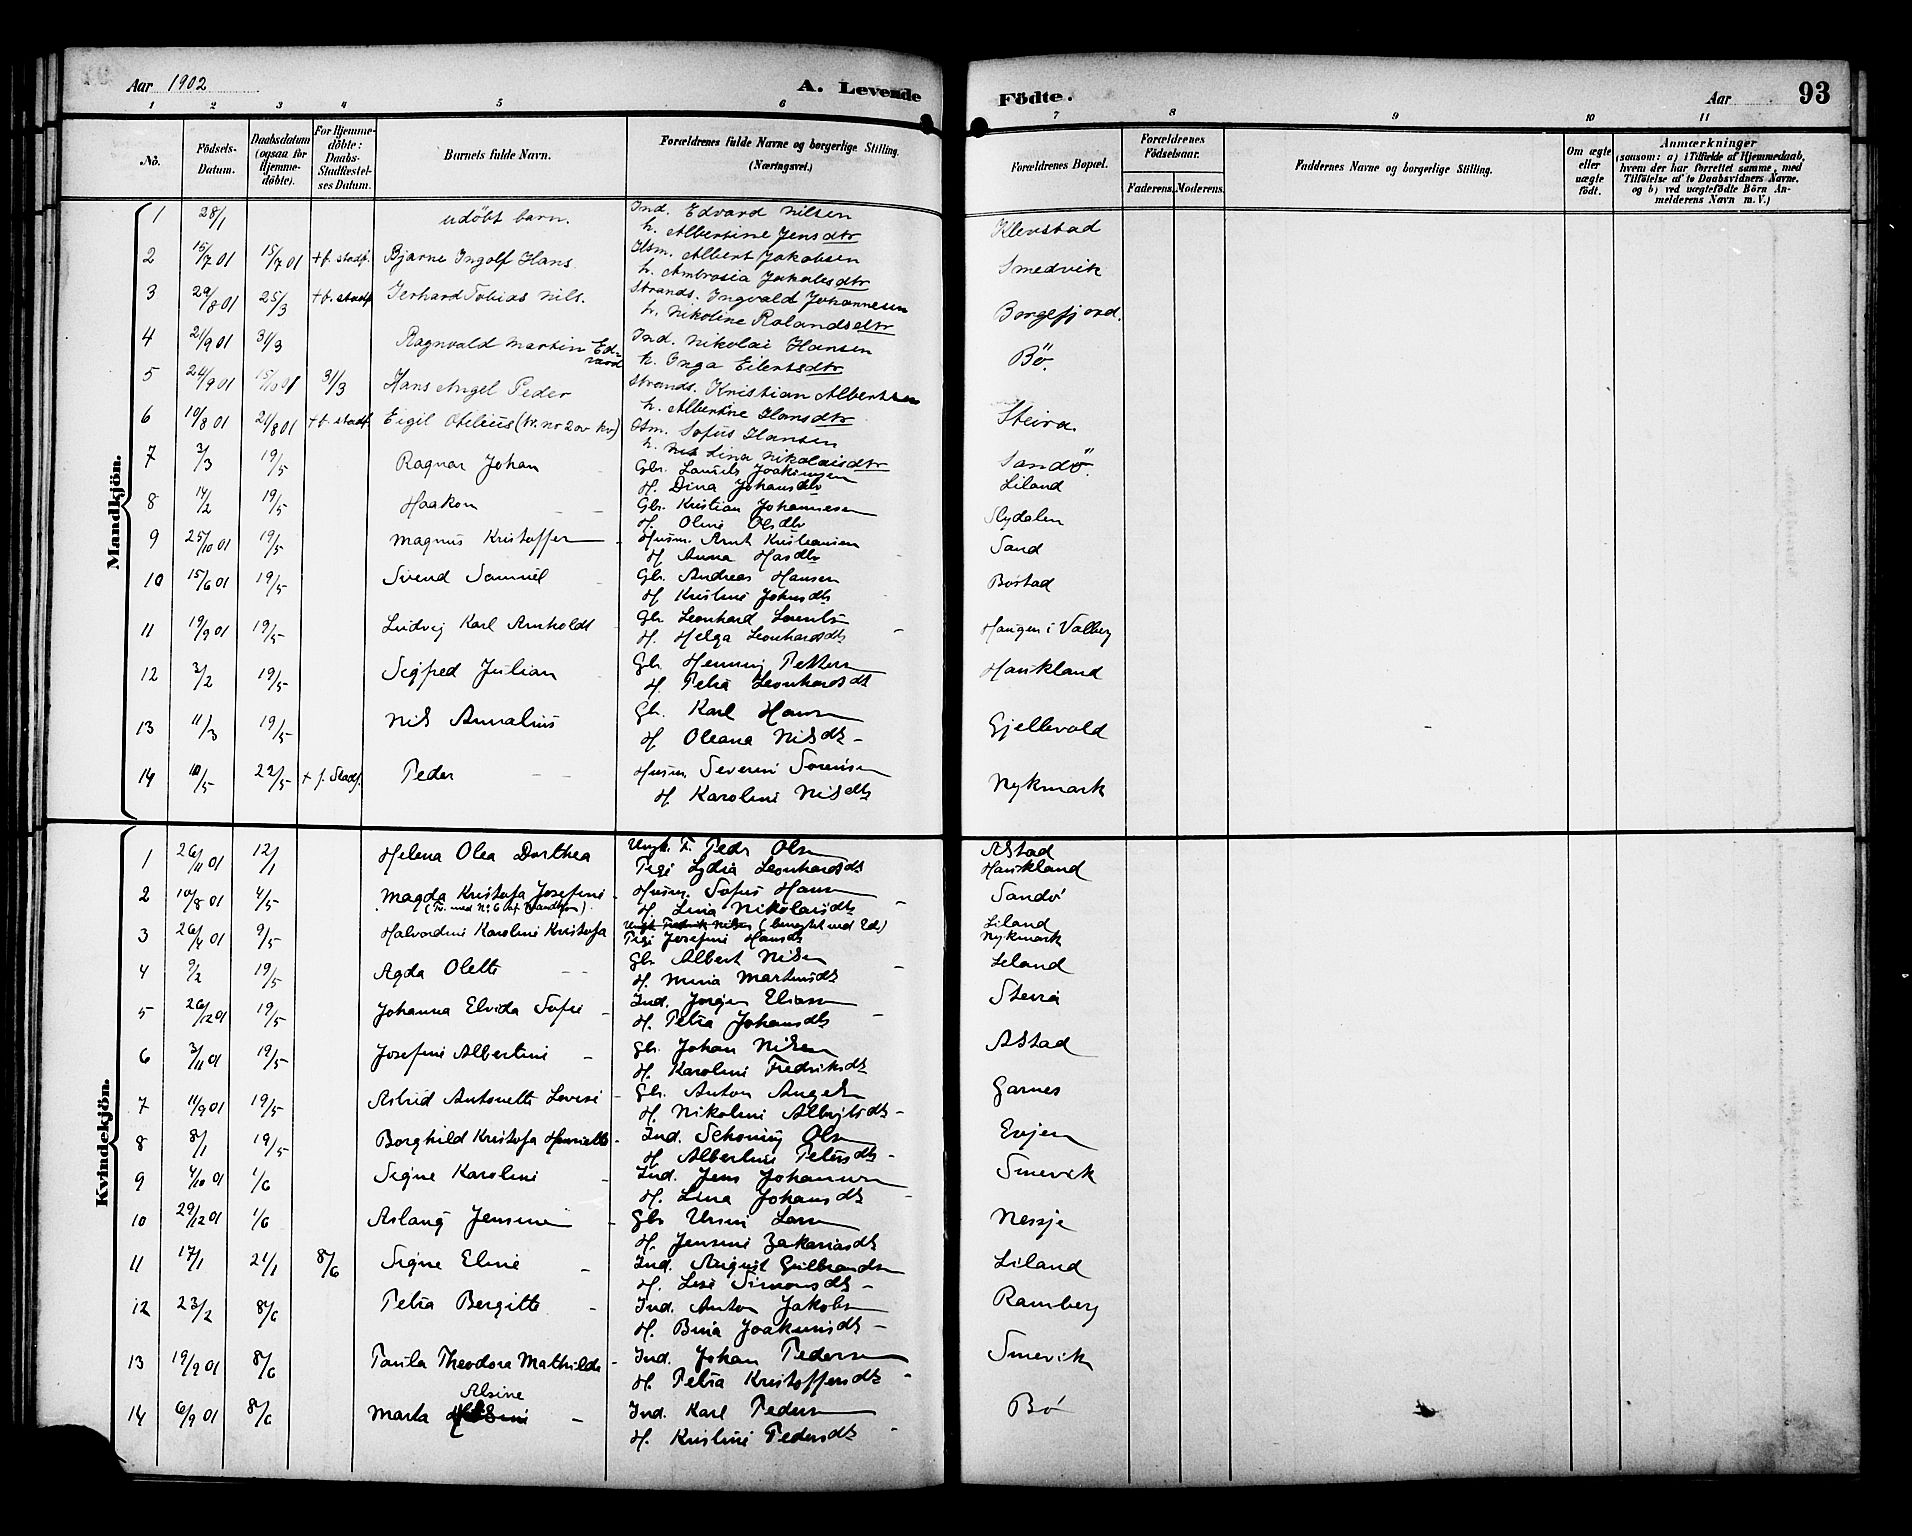 Aar 1902
A. Levende
Födte.
Aar
93
1 2 3 4 5 6 7 8 9 10 11
No.
Födsels-Datum.
Daabsdatum (ogsaa for Hjemme-döbte).
For Hjemme-döbte: Daabs-Stadfæstel-ses Datum.
Barnets fulde Navn.
Forældrenes fulde Navne og borgerlige Stilling. (Næringsvei.)
Forældrenes Bopæl.
Forældrenes Födselsaar.
Faderens. Moderens.
Faddernes Navne og borgerlige Stilling.
Om ægte eller uægte födt.
Anmærkninger
(saasom: a) i Tilfælde af Hjemmedaab, hvem der har forrettet samme, med Tilföielse af to Daabsvidners Navne, og b) ved uægtefödte Börn An-melderens Navn m. V.)
Mandkjön.
1 28/1 udöbt barn. Ind. Edvard Nilsen Klevstad
h. Albertine Jensdtr
2 15/7 01 15/7 01 +f. stadf. Bjarne Ingolf Hans Husm. Albert Jakobsen Smedvik
h. Ambrosia Jakobsdtr
3 29/8 01 25/3 +f. stadf. Gerhard Tobias Nils. Strands. Ingvald Johannesen Borgefjord.
h. Nikoline Rolandsdtr
4 21/9 01 31/3 Ragnvald Martin Edvard Ind. Nikolai Hansen Bö.
h. Inga Eilertsdtr
5 24/9 01 15/10 01 31/3 Hans Angel Peder Strands. Kristian Albertsen Steira.
h. Albertine Hansdtr
6 10/8 01 21/8 01 +f. stadf. Eigil Otelius (tv. nr 2 av kv) Husm. Sofus Hansen Sandö.
h. Lina Nikolaisdtr
7 3/3 19/5 Ragnar Johan Gbr. Laurits Joakimsen Liland
H. Dina Johansdtr
8 14/2 19/5 Haakon Gbr. Kristian Johannesen Slydalen
H. Oline Olsdtr
9 25/10 01 19/5 Magnus Kristoffer Husm. Arnt Kristiansen Sand
H. Anna Hansdtr
10 15/6 01 19/5 Svend Samuel Gbr. Andreas Hansen Bostad
H. Kristine Johnsdtr
11 19/9 01 19/5 Ludvig Karl Arnholdt Gbr. Leonhard Lorents Haugen i Valberg
H. Helga Leonhardsdtr
12 3/2 19/5 Sigfred Julian Gbr. Henning Pettersen Haukland
H. Petra Leonhardsdtr
13 11/3 19/5 Nils Annalius Gbr. Karl Hansen Gjellevold
H. Oleana Nilsdtr
14 10/5 22/5 + f. Stadf. Peder Husm. Severin Sorensen Nykmark
H. Karoline Nilsdtr
Kvindekjön.
1 26/11 01 12/1 Helena Olea Dorthea Ungk. F. Peder Olsen Alstad
Pige Lydia Leonhardsdtr Haukland
2 10/8 01 4/5 Magda Kristofa Josefine Husm. Sofus Hansen Sandö
(Tv. med No 6 af Mandkjön) H. Lina Nikolaisdtr
3 26/4 01 9/5 Halvordine Karoline Kristofa Ungk. Fredrik Nilsen (benegtet ved Ed) Liland
Pige Josefine Hansdtr Nykmark
4 9/2 19/5 Agda Olette Gbr. Albert Nilsen Leland
H. Mina Martinsdtr
5 26/12 01 19/5 Johanna Elvida Sofie Ind. Jorgen Eliasen Steira
H. Petra Johansdtr
6 3/11 01 19/5 Josefine Albertine Gbr. Johan Nilsen Alstad
H. Karoline Fredriksdtr
7 11/9 01 19/5 Astrid Antonette Lovise Gbr. Anton Angelsen Garnes
H. Nikoline Albrigtsdtr
8 8/1 19/5 Borghild Kristofa Henriette Ind. Schoning Olsen Evjen
H. Albertine Petersdtr
9 4/10 01 1/6 Signe Karoline Ind. Jens Johansen Smevik
H. Lina Johansdtr
10 29/12 01 1/6 Aslaug Jensine Gbr. Ursin Larsen Nessje
H. Jensine Zakariasdtr
11 17/1 21/1 8/6 Signe Eline Ind. August Gulbrandsen Liland
H. Lise Simonsdtr
12 23/2 8/6 Petra Bergitte Ind. Anton Jakobsen Ramberg
H. Bina Joakimsdtr
13 19/2 01 8/6 Paula Theodora Mathilde Ind. Johan Pedersen Smevik
H. Petra Kristoffersdtr
14 6/9 01 8/6 Marta Alsine Ind. Karl Pedersen Bö
H. Kristine Pedersdtr